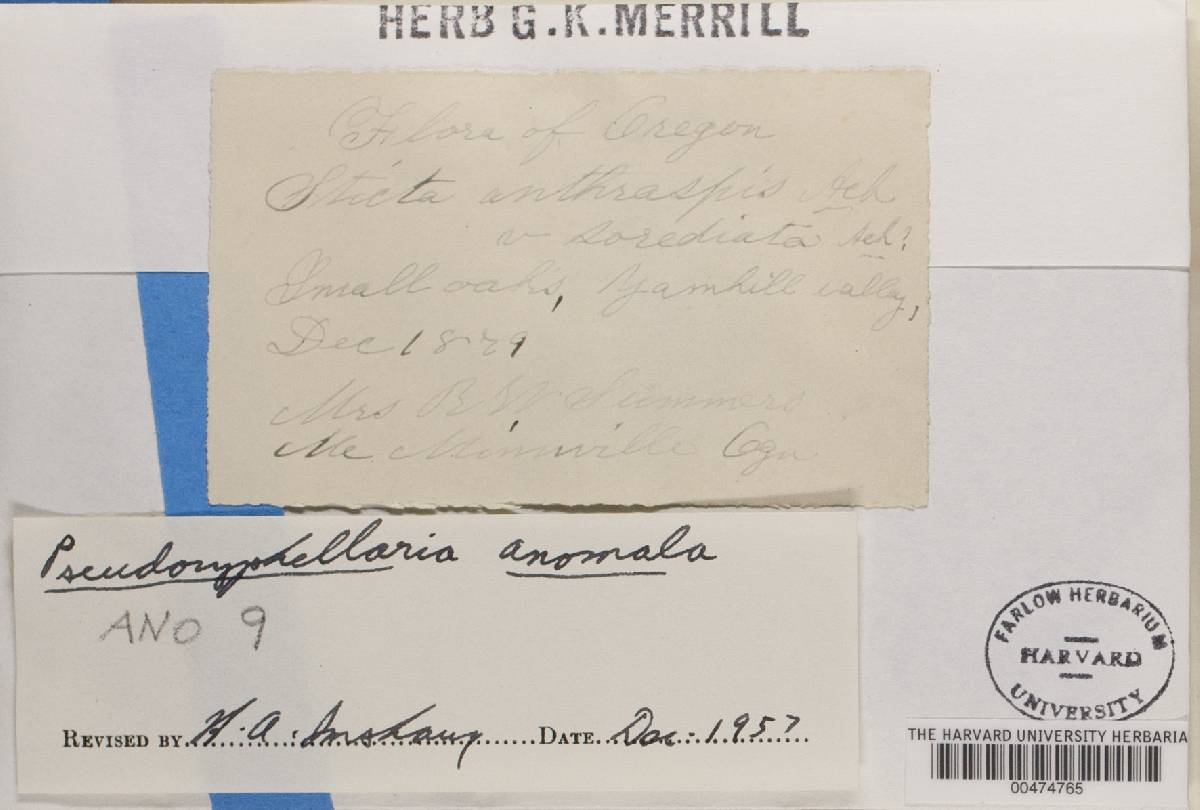 HERB G.K.MERRILL
Flora of Oregon
Sticta anthraspis Ach
v soredíata Ach?
Small oaks, Yamhill valley,
Dec 1879
Mrs R W Summers
Mc Minnville Ogn
Pseudocyphellaria anomala
ANO 9
REVISED BY H. A. Imshaug DATE Dec. 1957
FARLOW HERBARIUM
HARVARD
UNIVERSITY
THE HARVARD UNIVERSITY HERBARIA
00474765